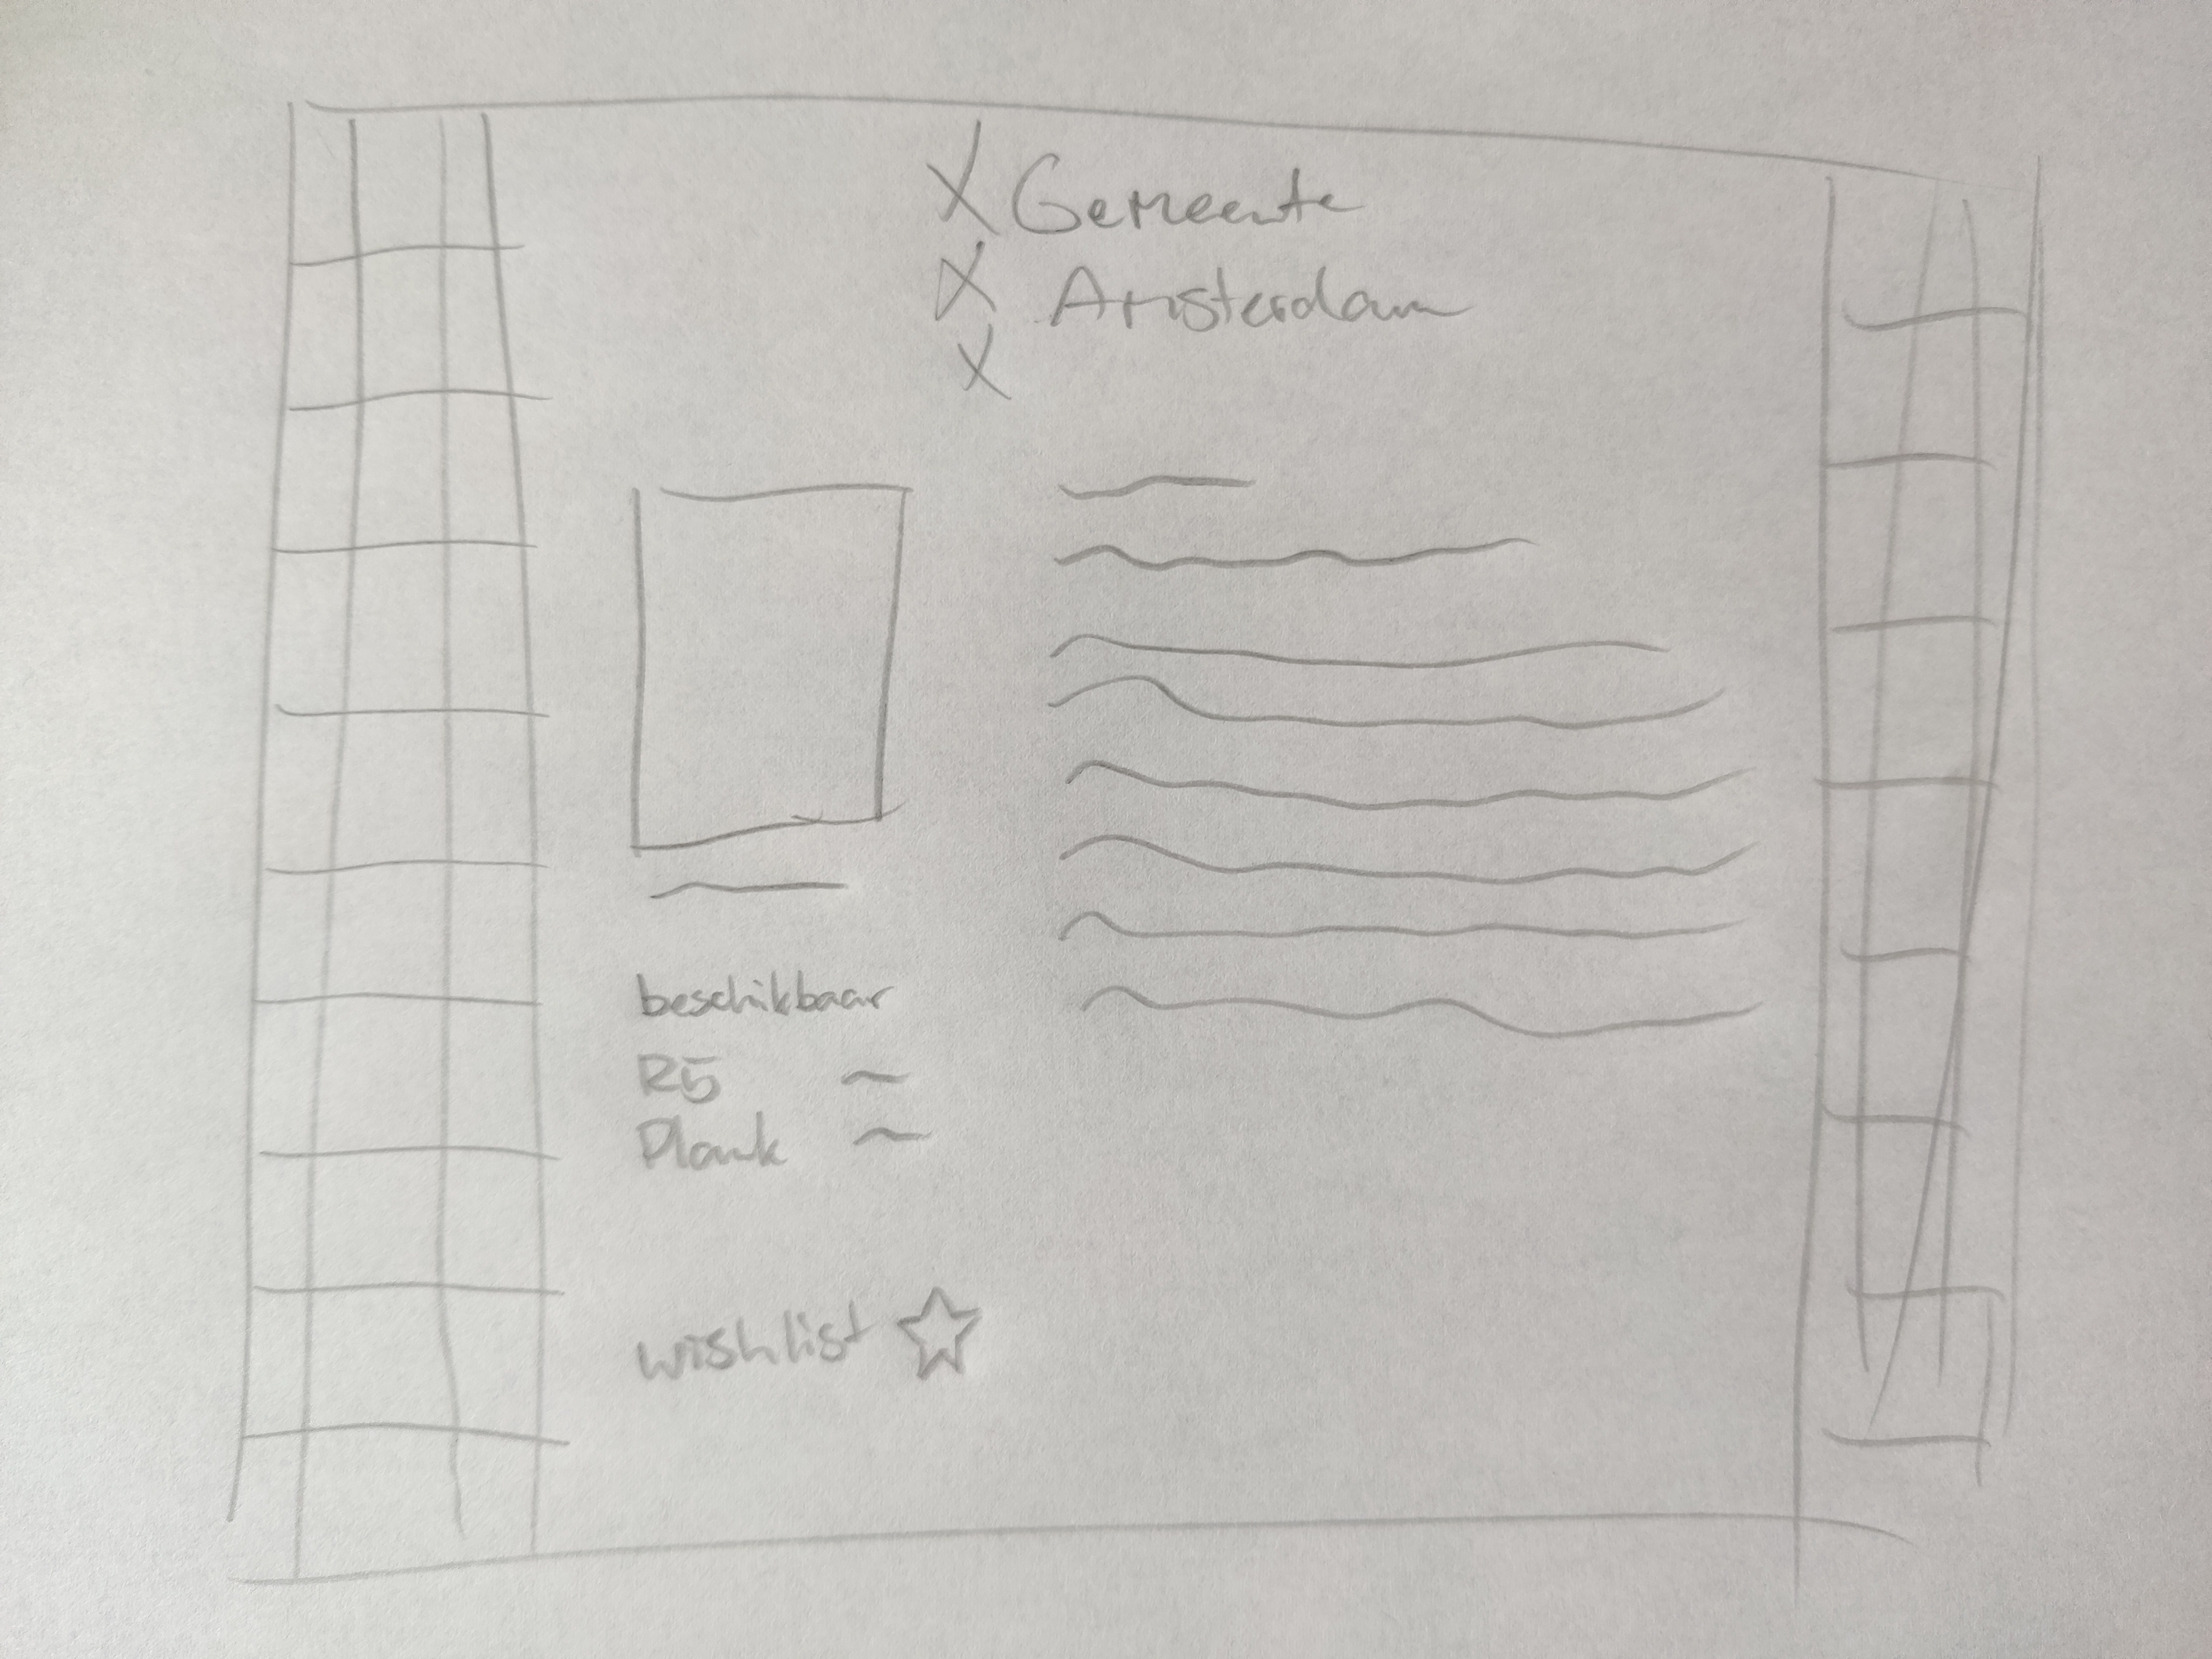 X Gemeente
X Amsterdam
X
beschikbaar
R5 ~
Plank ~
wishlist ☆